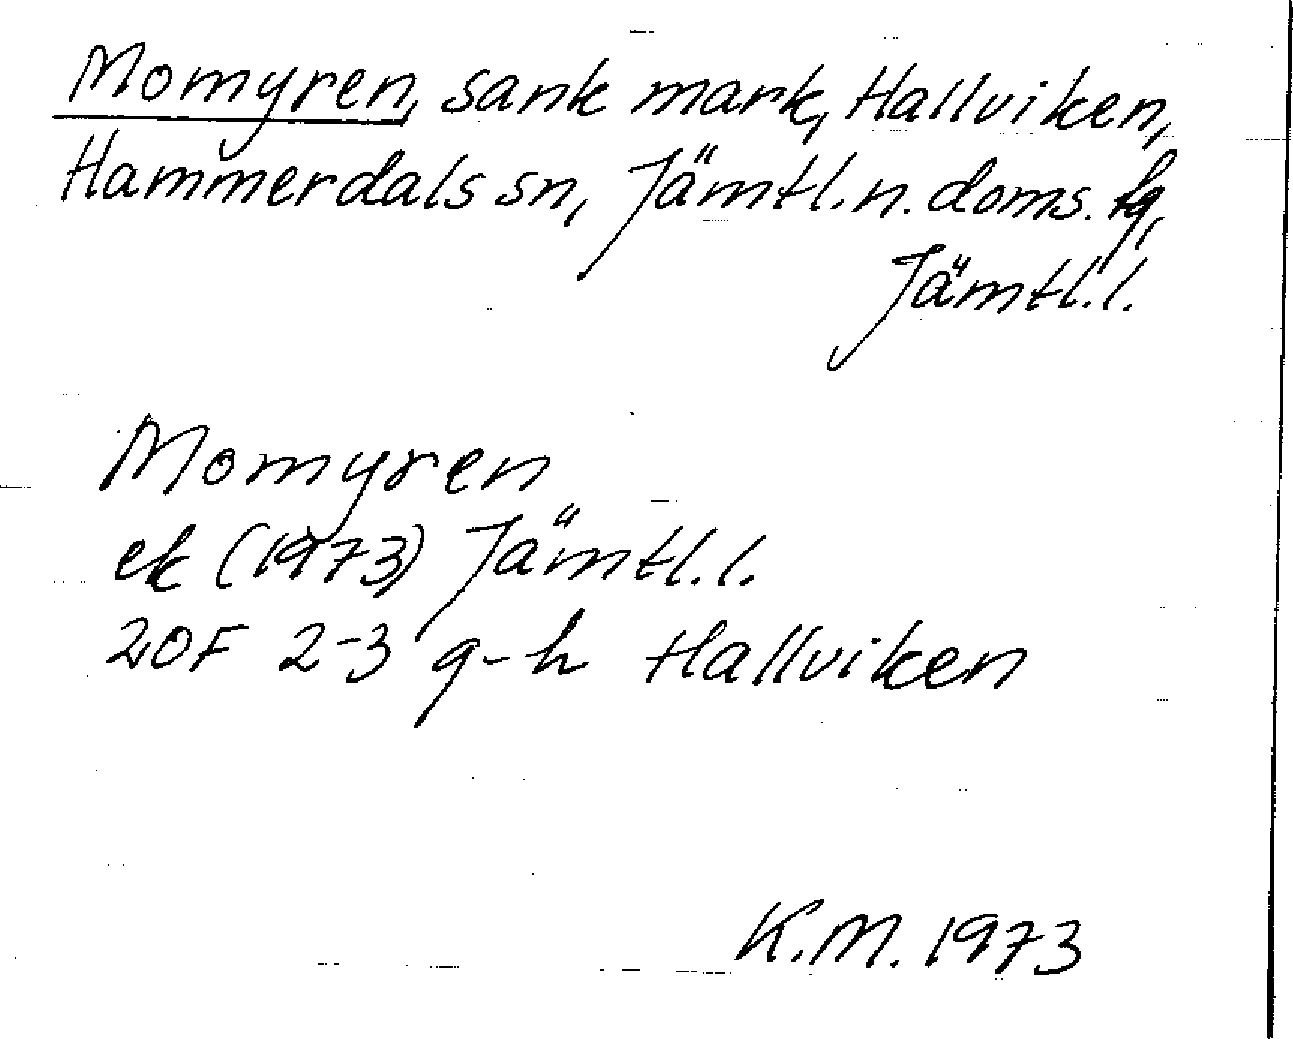 Momyren, sank mark, Hallviken,
Hammerdals sn, Jämtl.n.doms.fg,
Jämtl.l.
Momyren
ek (1973) Jämtl.l.
20F 2-3 g-h Hallviken
K.M. 1973